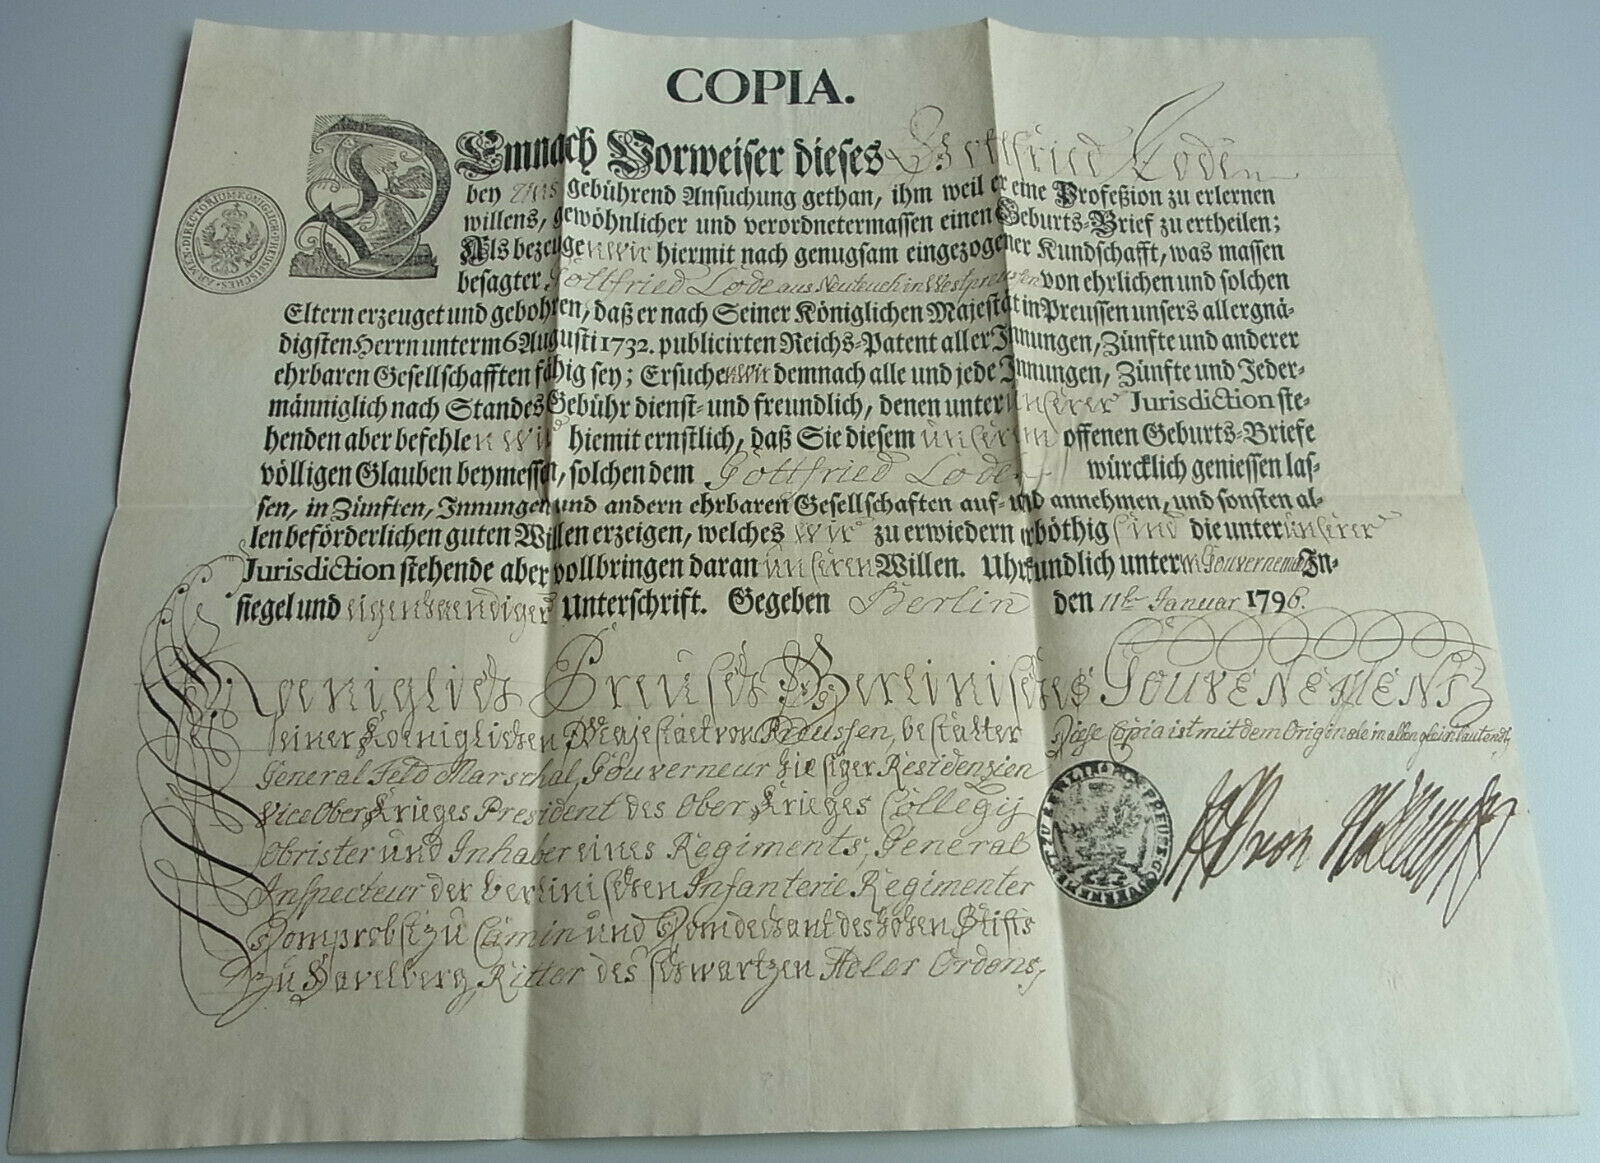 COPIA.
DEmnach Vorweiser dieses Gottfried Lode
bey Uns gebührend Ansuchung gethan, ihm weil er eine Profeßion zu erlernen
willens, gewöhnlicher und verordnetermassen einen Geburts-Brief zu ertheilen;
Als bezeugen Wir hiermit nach genugsam eingezogener Kundschafft, was massen
besagter Gottfried Lode aus Neuteuch in Westpreussen von ehrlichen und solchen
Eltern erzeuget und gebohren, daß er nach Seiner Königlichen Majestät in Preussen unsers allergnä-
digsten Herrn unterm 6 Augusti 1732. publicirten Reichs-Patent aller Innungen, Zünfte und anderer
ehrbaren Gesellschafften fähig sey; Ersuchen Wir demnach alle und jede Innungen, Zünfte und Jeder-
männiglich nach Standes Gebühr dienst- und freundlich, denen unter unserer Jurisdiction ste-
henden aber befehlen Wir hiemit ernstlich, daß Sie diesem unserm offenen Geburts-Briefe
völligen Glauben beymessen, solchen dem Gottfried Lode würcklich geniessen las-
sen, in Zünften, Innungen und andern ehrbaren Gesellschaften auf- und annehmen, und sonsten al-
len beförderlichen guten Willen erzeigen, welches Wir zu erwiedern erböthig sind die unter unserer
Jurisdiction stehende aber vollbringen daran unseren Willen. Uhrkundlich unterm Gouvernements In-
siegel und eigenhaendiger Unterschrift. Gegeben Berlin den 11ten Januar 1796.
Koeniglich Preusch Berlinisches GOUVERNEMENT
Seiner Koeniglichen Majestaet von Preussen, bestalter
General Feld Marschal, Gouverneur hiesiger Residenzien
Vice Ober Krieges President des Ober Krieges Collegij
Obrister und Inhaber eines Regiments, General
Inspecteur der berlinischen Infanterie Regimenter
Domprobst zu Camin und Domdechant des hohen Stifts
zu Havelberg, Ritter des schwartzen Adler Ordens,
Diese Copia ist mit dem Originale in allen gleichlautend,
von
ARMEN-DIRECTORIUM KÖNIGL. PREUSSISCHES